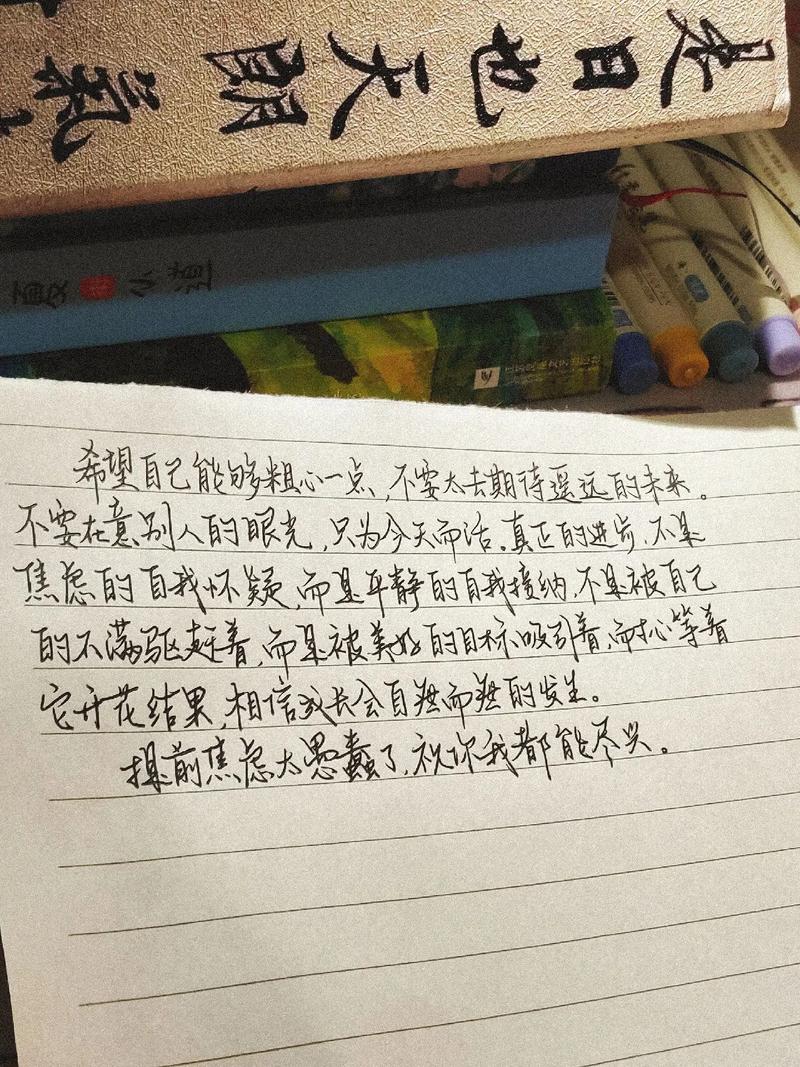 是日也天朗氣
夏 小道
希望自己能够粗心一点,不要太去期待遥远的未来。
不要在意别人的眼光,只为今天而活。真正的进步,不是
焦虑的自我怀疑,而是平静的自我接纳,不是被自己
的不满驱赶着,而是被美好的目标吸引着,而耐心等着
它开花结果,相信成长会自然而然的发生。
提前焦虑太愚蠢了,祝你我都能尽兴。